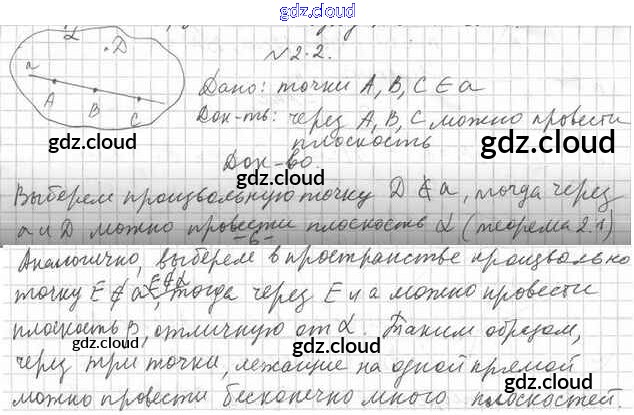 gdz.cloud
α
D
a
A
B
C
№2.2.
Дано: точки A, B, C ∈ a
Док-ть: через A, B, C можно провести
плоскость
Док-во.
Выберем произвольную точку D ∉ a, тогда через
a и D можно провести плоскость α (теорема 2.1)
-6-
Аналогично, выберем в пространстве произвольно
точку E ∉ a, E ∉ α, тогда через E и a можно провести
плоскость β, отличную от α. Таким образом,
через три точки, лежащие на одной прямой
можно провести бесконечно много плоскостей.
gdz.cloud
gdz.cloud
gdz.cloud
gdz.cloud
gdz.cloud
gdz.cloud
gdz.cloud
gdz.cloud
gdz.cloud